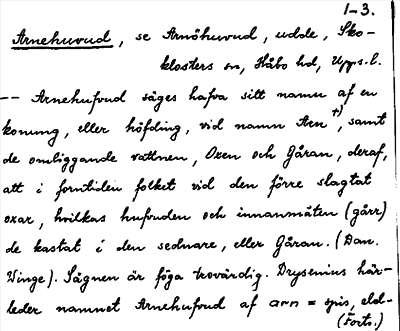 1-3.
Arnehuvud, se Arnöhuvud, udde, Sko-
klosters sn, Håbo hd, Upps. l.
-- Arnehufvud säges hafva sitt namn af en
konung, eller höfding, vid namn Arn †), samt
de omliggande vattnen, Oxen och Gåran, deraf,
att i forntiden folket vid den förre slagtat
oxar, hvilkas hufvuden och innanmäten (gårr)
de kastat i den sednare, eller Gåran. (Dan.
Winge). Sägnen är föga trovärdig. Drysenius här-
leder namnet Arnehufvud af arn = spis, eld-
(Forts.)